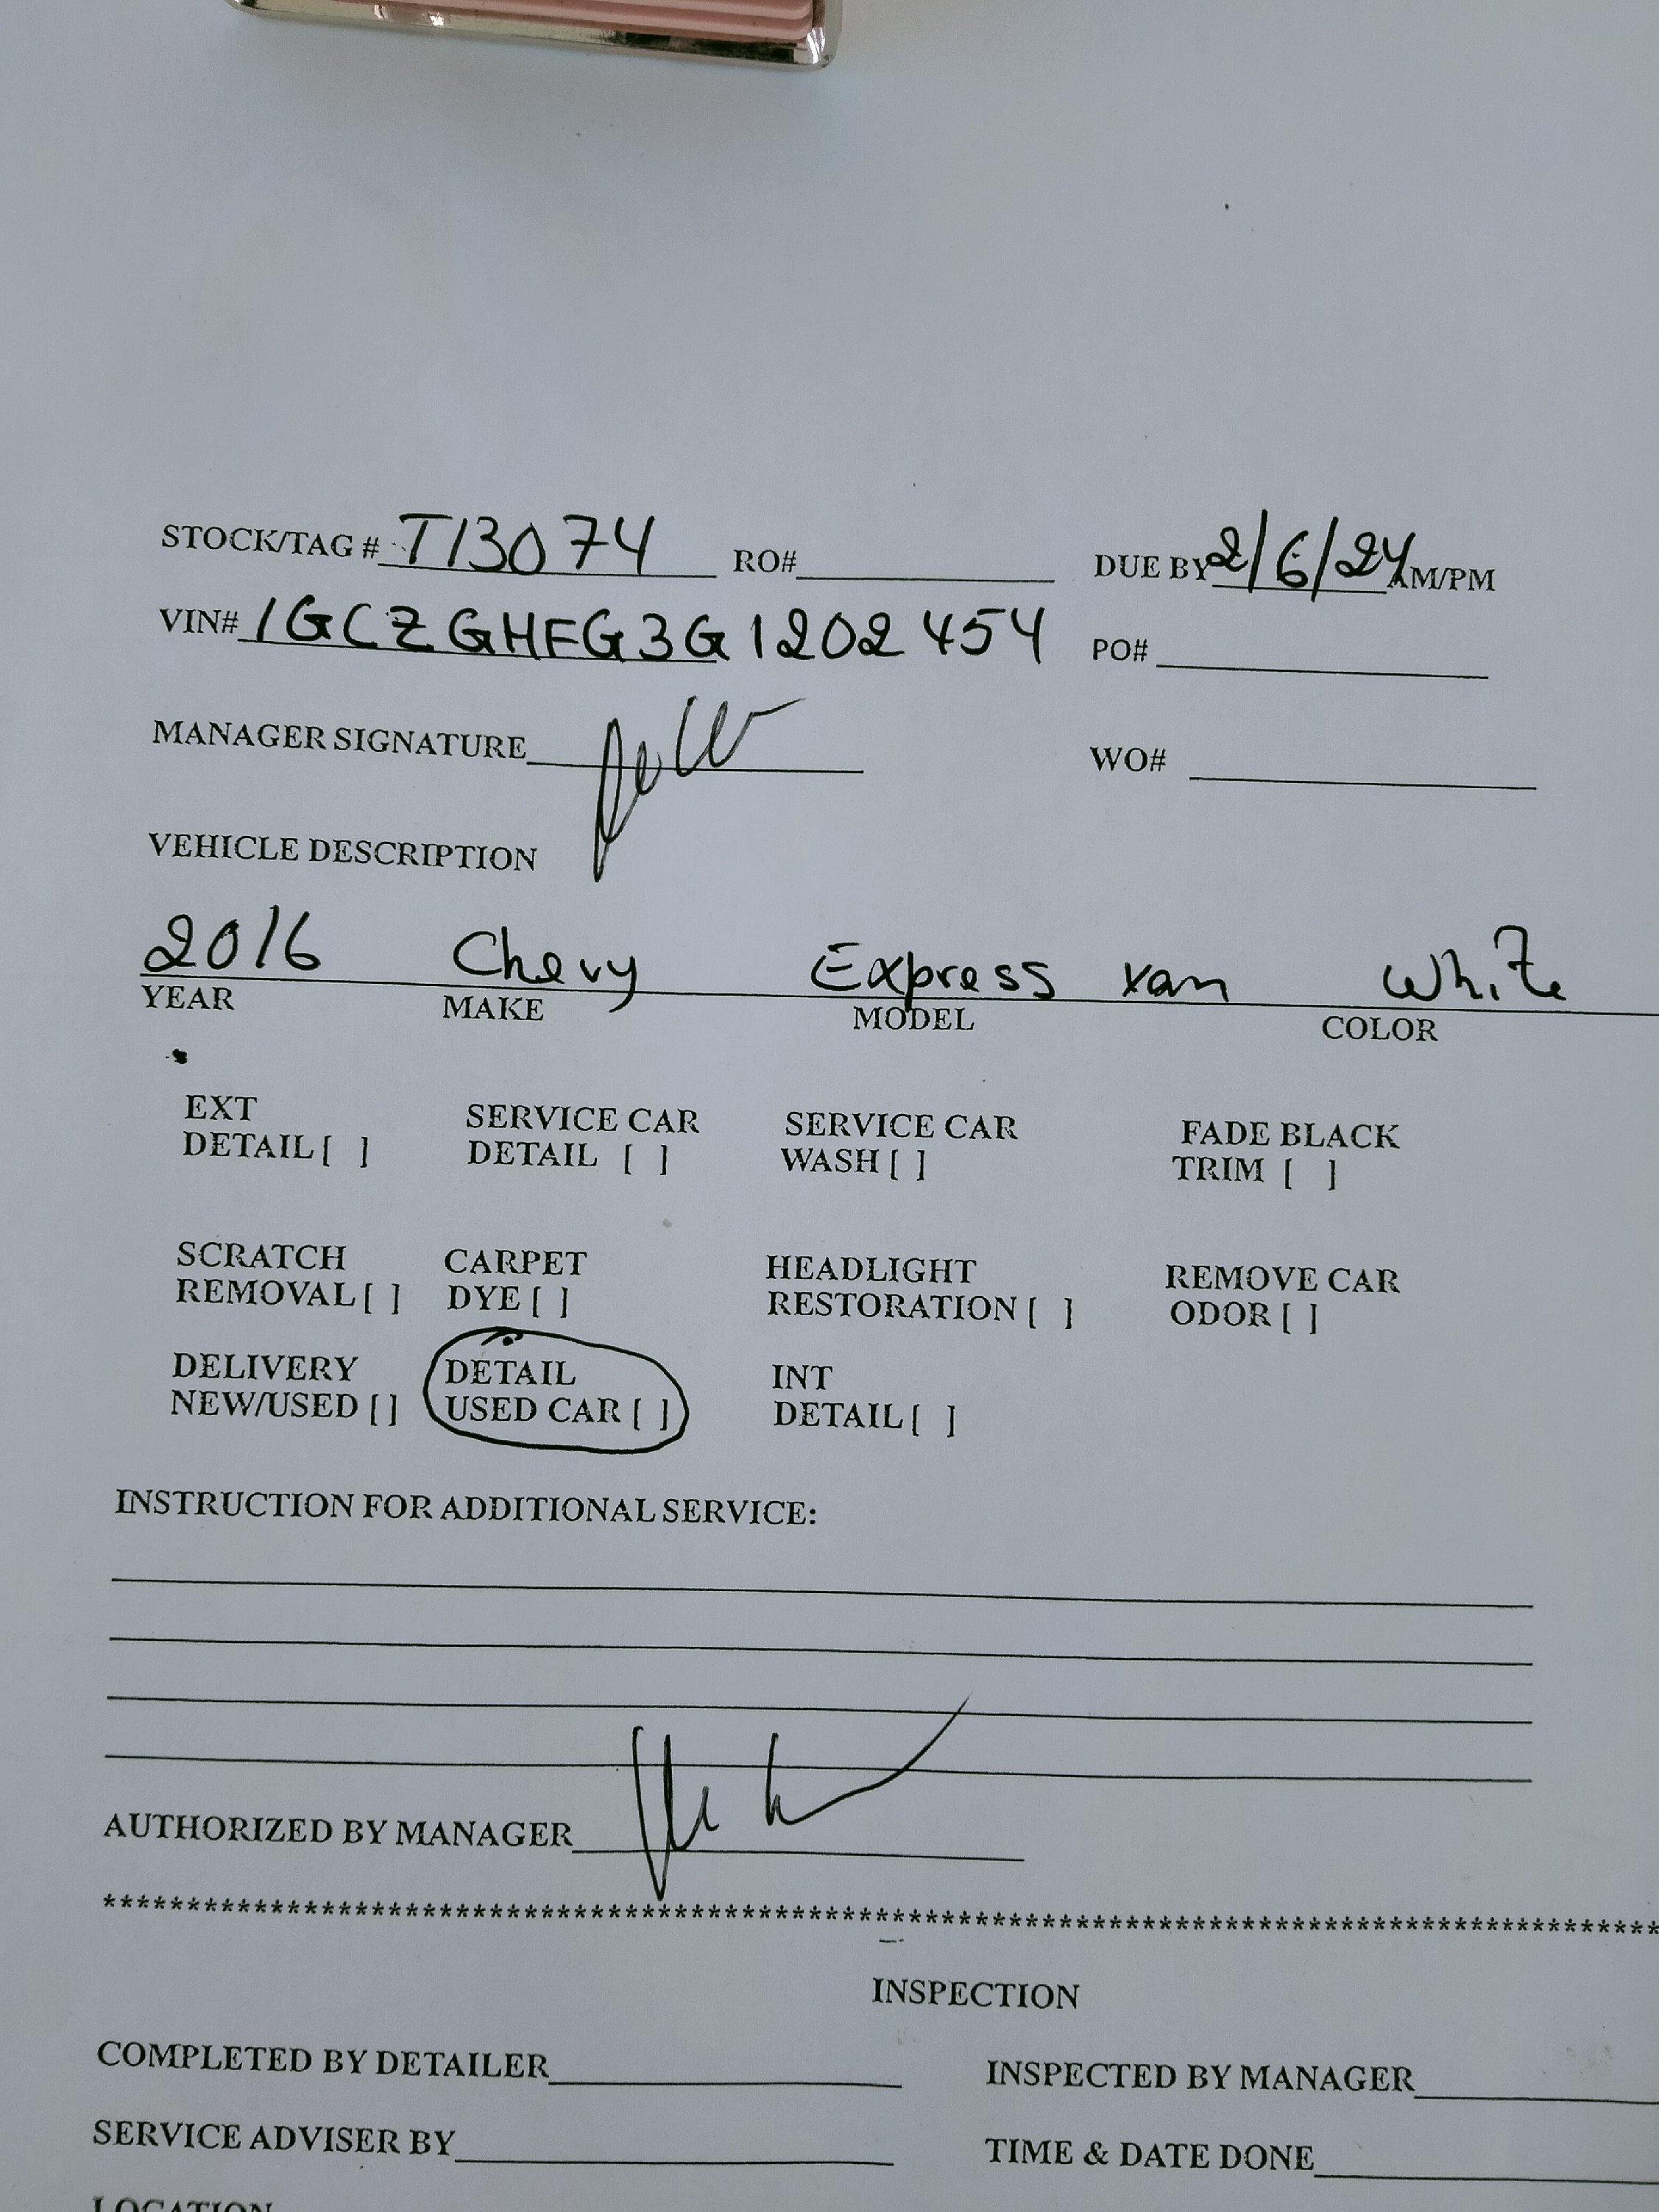 STOCK/TAG # T13074 RO# DUE BY 2/6/24 AM/PM
VIN# 1GCZGHFG3G1202454 PO#
MANAGER SIGNATURE WO#
VEHICLE DESCRIPTION
2016 Chevy Express van White
YEAR MAKE MODEL COLOR
EXT SERVICE CAR SERVICE CAR FADE BLACK
DETAIL [ ] DETAIL [ ] WASH [ ] TRIM [ ]
SCRATCH CARPET HEADLIGHT REMOVE CAR
REMOVAL [ ] DYE [ ] RESTORATION [ ] ODOR [ ]
DELIVERY DETAIL INT
NEW/USED [ ] USED CAR [ ] DETAIL [ ]
INSTRUCTION FOR ADDITIONAL SERVICE:
AUTHORIZED BY MANAGER
INSPECTION
COMPLETED BY DETAILER INSPECTED BY MANAGER
SERVICE ADVISER BY TIME & DATE DONE
LOCATION